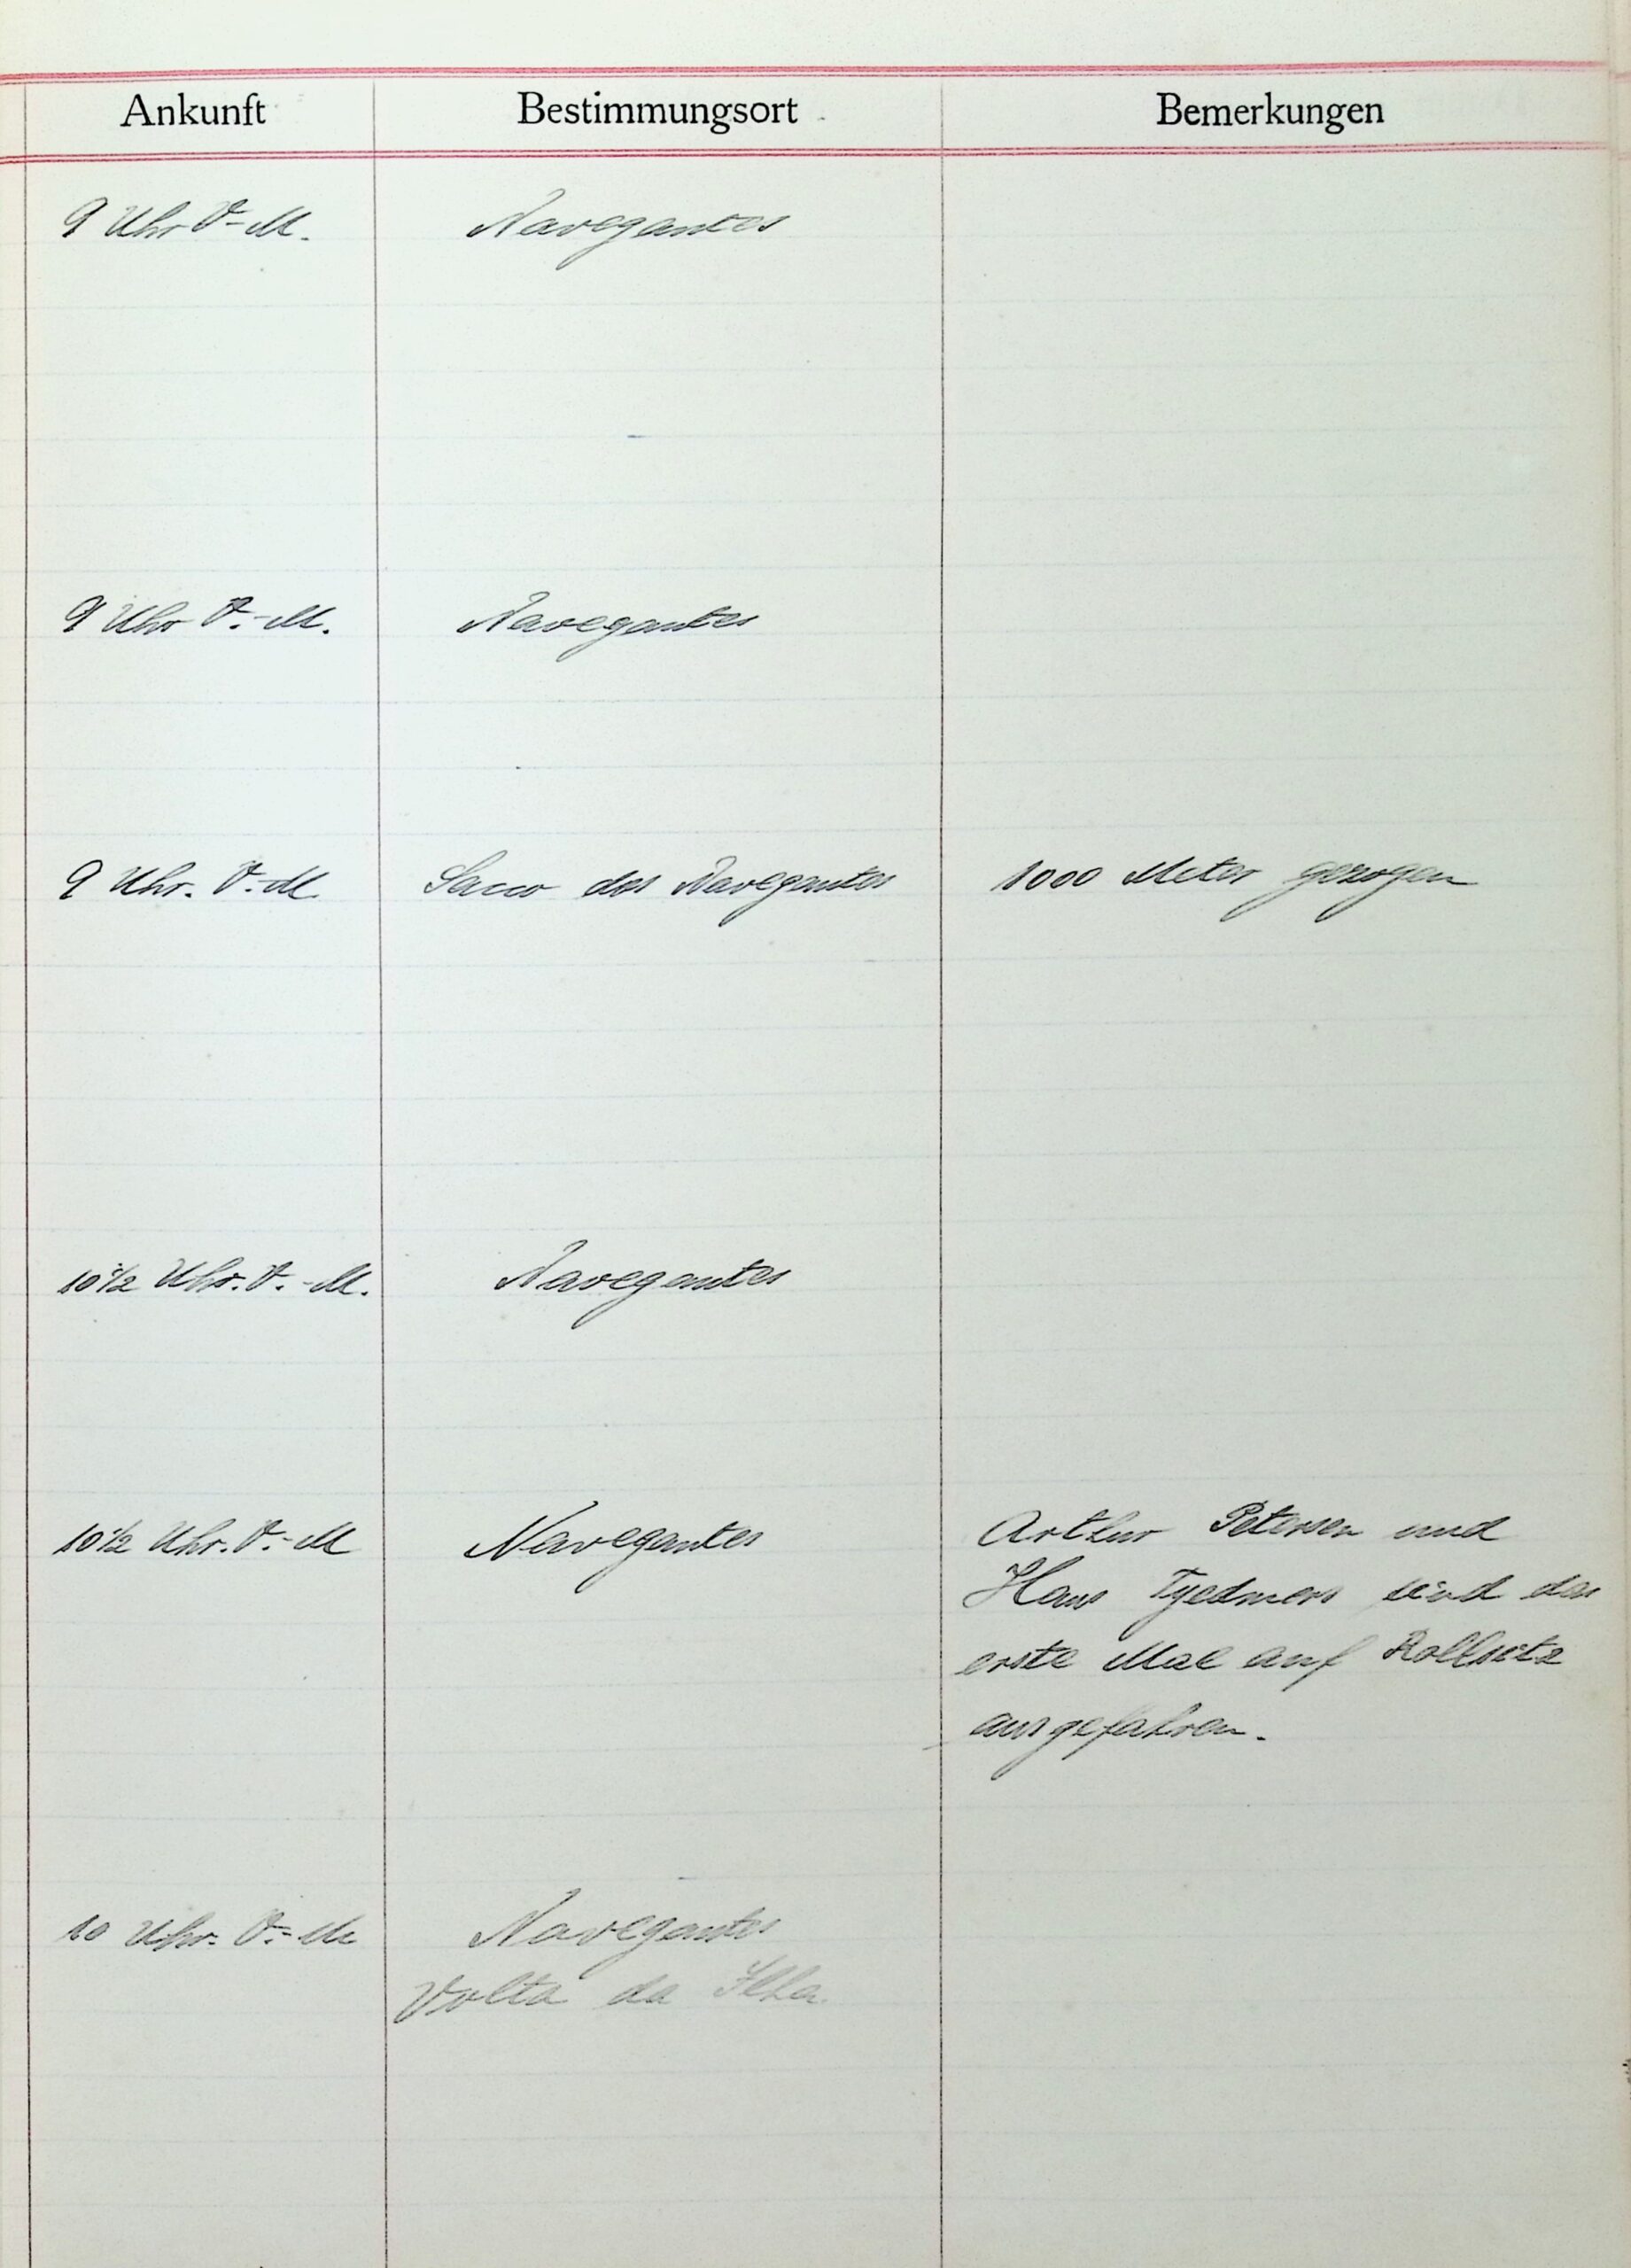 Ankunft Bestimmungsort Bemerkungen
9 Uhr V.-M. Navegantes
9 Uhr V.-M. Navegantes
9 Uhr. V.-M. Sacco dos Navegantes 1000 Meter gezogen
10 1/2 Uhr. V.-M. Navegantes
10 1/2 Uhr. V.-M Navegantes Arthur Petersen und
Hans Tjedmers sind das
erste Mal auf Rollsitz
ausgefahren.
10 Uhr. V.-M Navegantes
Volta da Ilha.